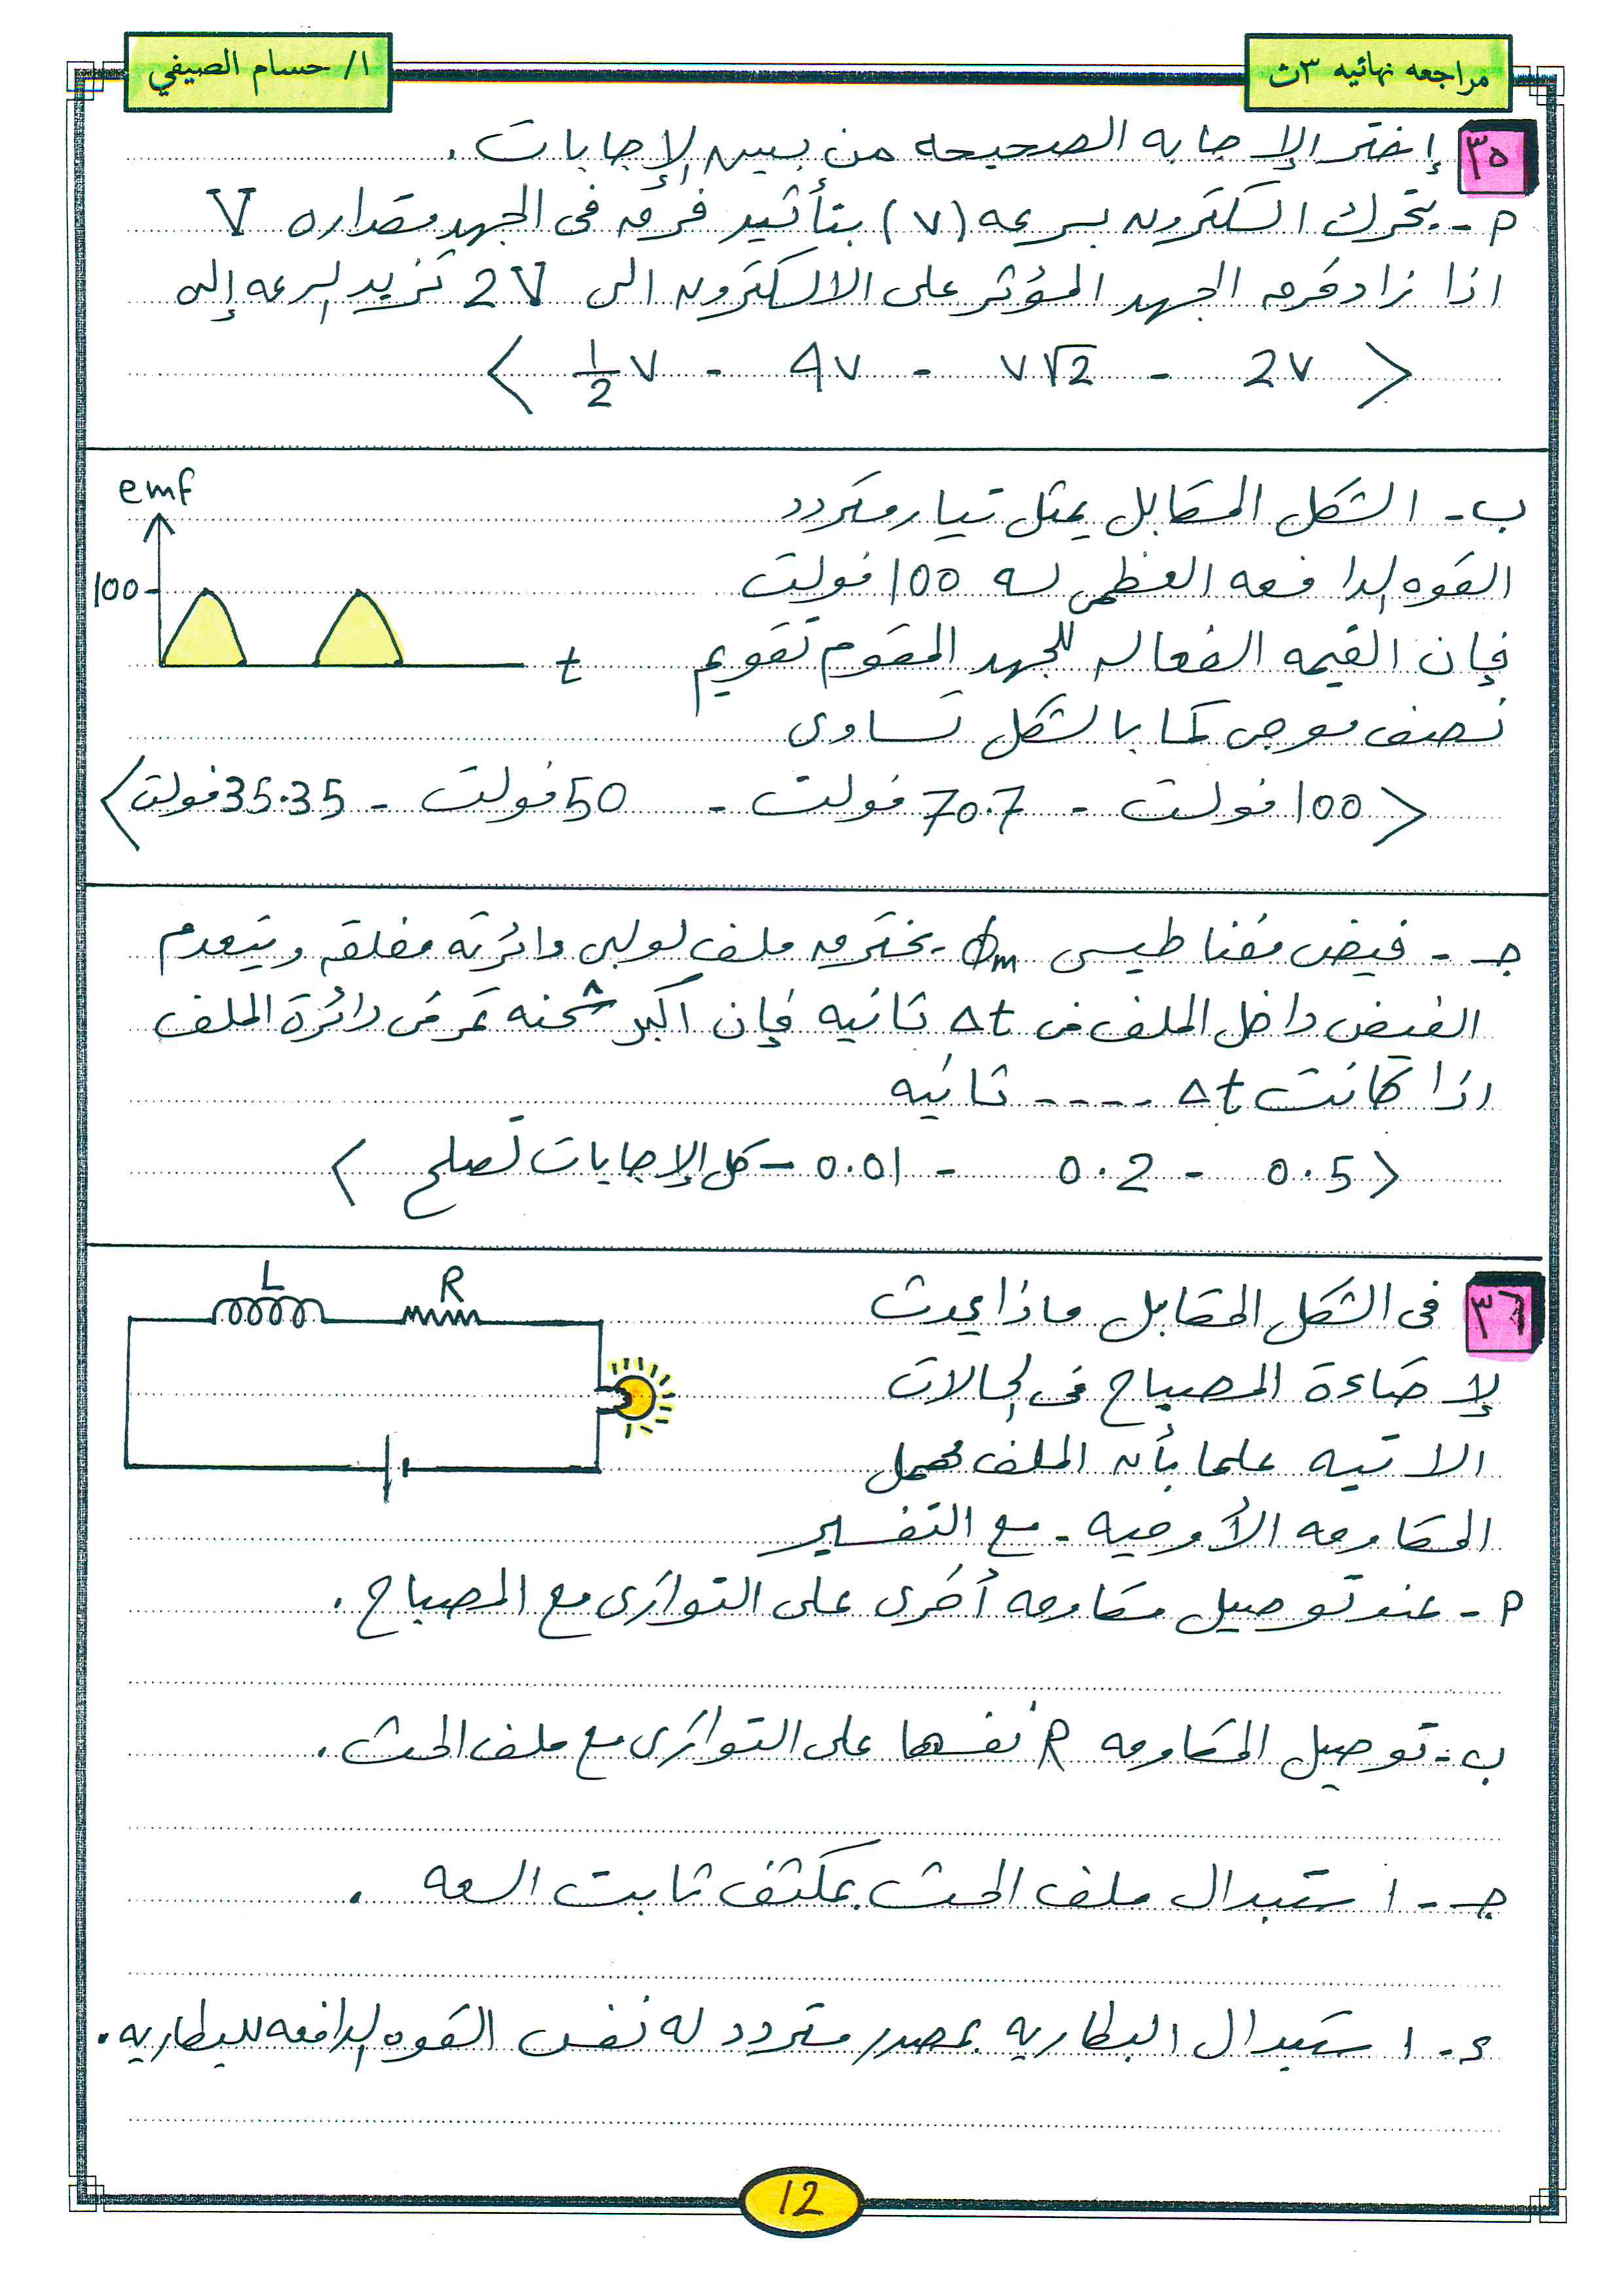 مراجعه نهائيه ٣ث
ا/ حسام الصيفي
٣٥ إختر الإجابه الصحيحه من بين الإجابات.
م - يتحرك الكترون بسرعه (v) بتأثير فرق فى الجهد مقداره V
اذا زاد فرق الجهد المؤثر على الالكترون الى 2V تزيد السرعه إلى
< 2v - v√2 - 4v - 1/2 v >
ب - الشكل المقابل يمثل تيار متردد
القوه الدافعه العظمى له 100 فولت
فإن القيمه الفعاله للجهد المقوم تقويم
نصف موجى كما بالشكل تساوى
< 100 فولت - 70.7 فولت - 50 فولت - 35.35 فولت >
emf
100
t
جـ - فيض مغناطيسى ϕm يخترق ملف لولبى دائرته مغلقه وينعدم
الفيض داخل الملف فى Δt ثانيه فإن أكبر شحنه تمر فى دائرة الملف
اذا كانت Δt ---- ثانيه
< 0.5 - 0.2 - 0.01 - كل الإجابات تصلح >
٣٦ فى الشكل المقابل ماذا يحدث
لإضاءة المصباح فى الحالات
الاتيه علما بأن الملف مهمل
المقاومه الأوميه - مع التفسير
L
R
م - عند توصيل مقاومه أخرى على التوازى مع المصباح.
ب - توصيل المقاومه R نفسها على التوازى مع ملف الحث.
جـ - استبدال ملف الحث بمكثف ثابت السعه.
د - استبدال البطاريه بمصدر متردد له نفس القوه الدافعه للبطاريه.
12